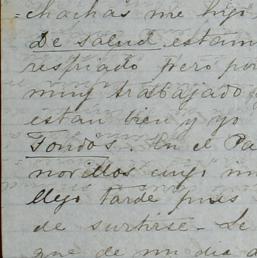 =chachas me hizo
De salud estam
respriado pero por
muy trabajado
estan bien y yo
Fondos. En el Pa
novillos cuyo im
llego tarde pues
de surtirse. Se
que de un dia a